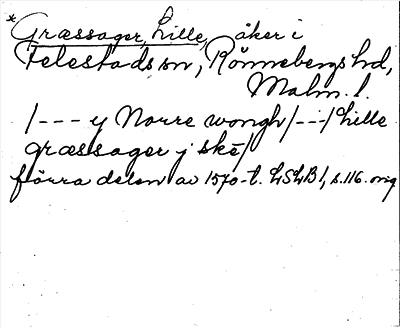 *Græssager, Lille, åker i
Felestads sn, Rönnebergs hd,
Malm. l.
/--- y Norre wongh/---/ Lille
græssager j skē/
förra delen av 1570-t. LSLB 1, s. 116. orig